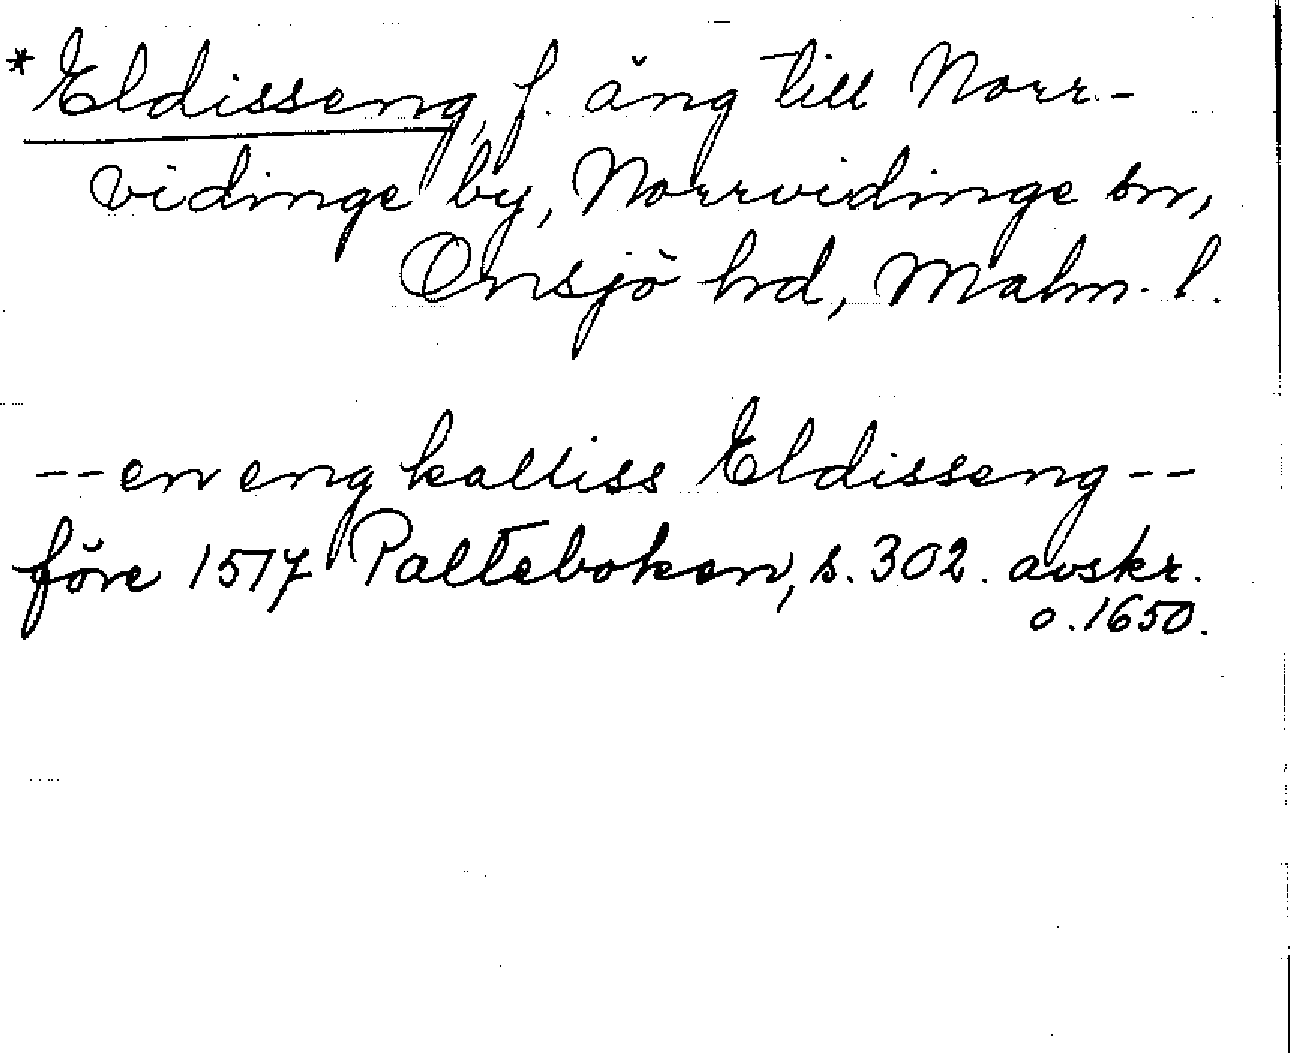 *Eldisseng, f. äng till Norr-
vidinge by, Norrvidinge sn,
Onsjö hd, Malm. l.
-- en eng kalliss Eldisseng --
före 1517 Palteboken, s. 302. avskr.
o. 1650.